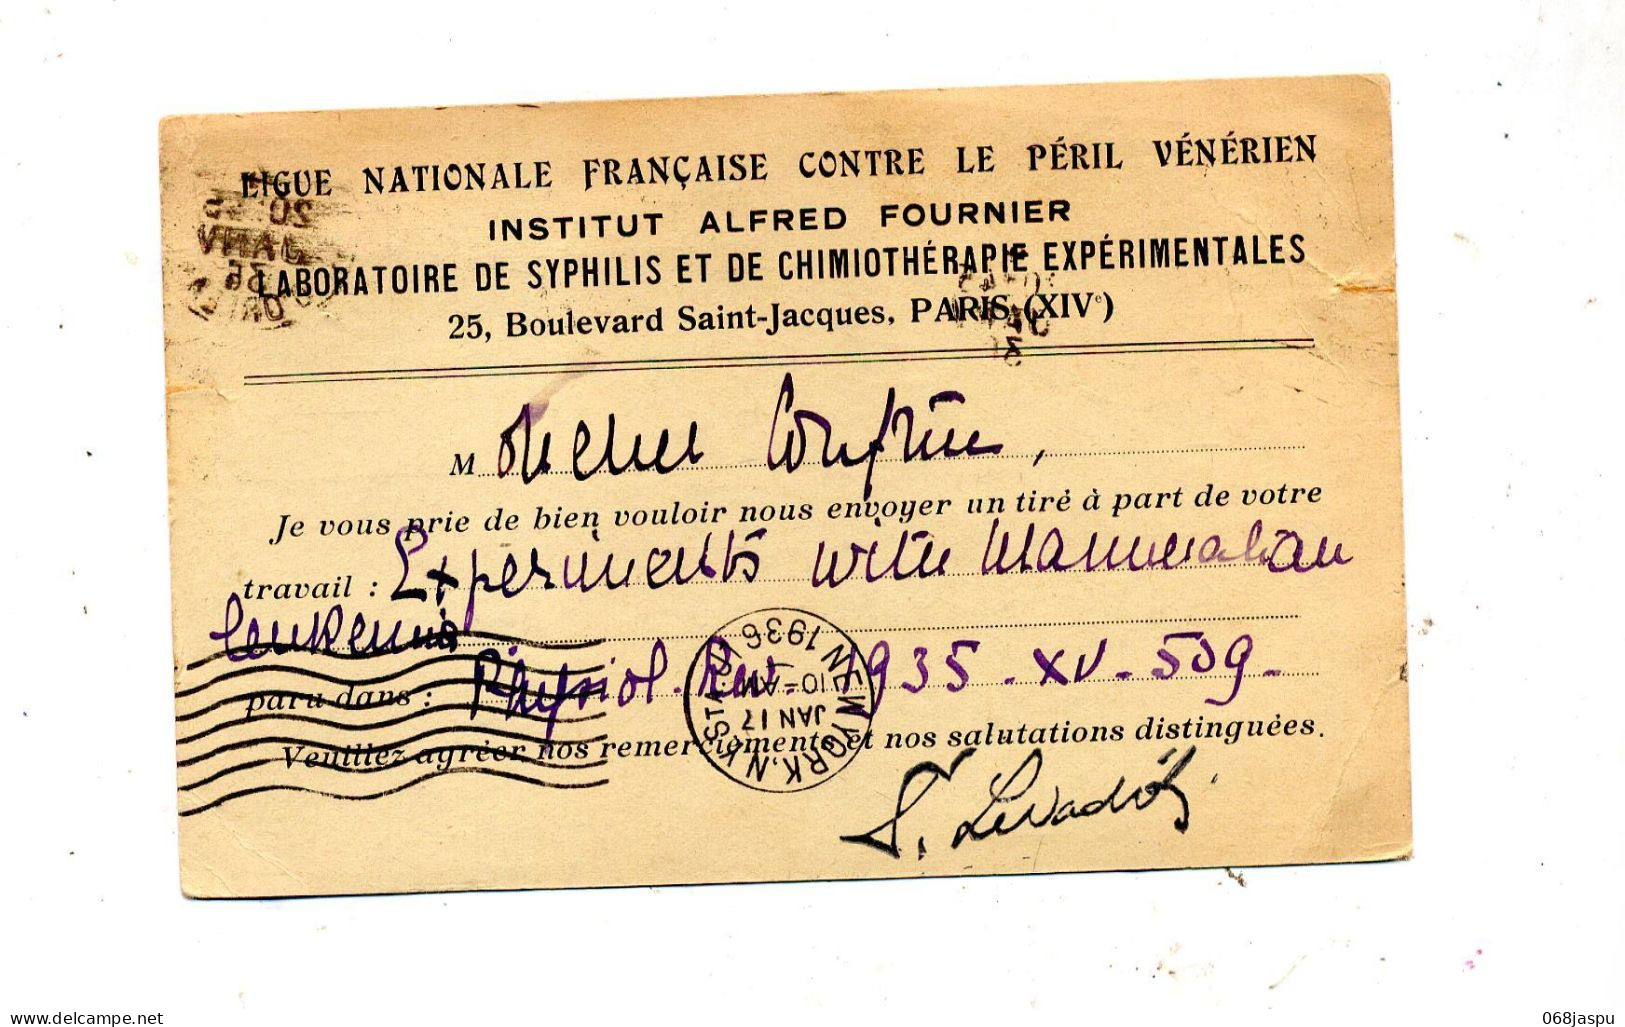 LIGUE NATIONALE FRANÇAISE CONTRE LE PÉRIL VÉNÉRIEN
INSTITUT ALFRED FOURNIER
LABORATOIRE DE SYPHILIS ET DE CHIMIOTHÉRAPIE EXPÉRIMENTALES
25, Boulevard Saint-Jacques, PARIS (XIVe)
Mon cher Confrère,
Je vous prie de bien vouloir nous envoyer un tiré à part de votre
travail : Experiments with Mammalian
leukemia
paru dans : Physiol. Rev. 1935 - XV - 509 -
Veuillez agréer nos remerciements et nos salutations distinguées.
NEW YORK, N.Y. STA.
JAN 17
10-AM
1936
delcampe.net
068jaspu